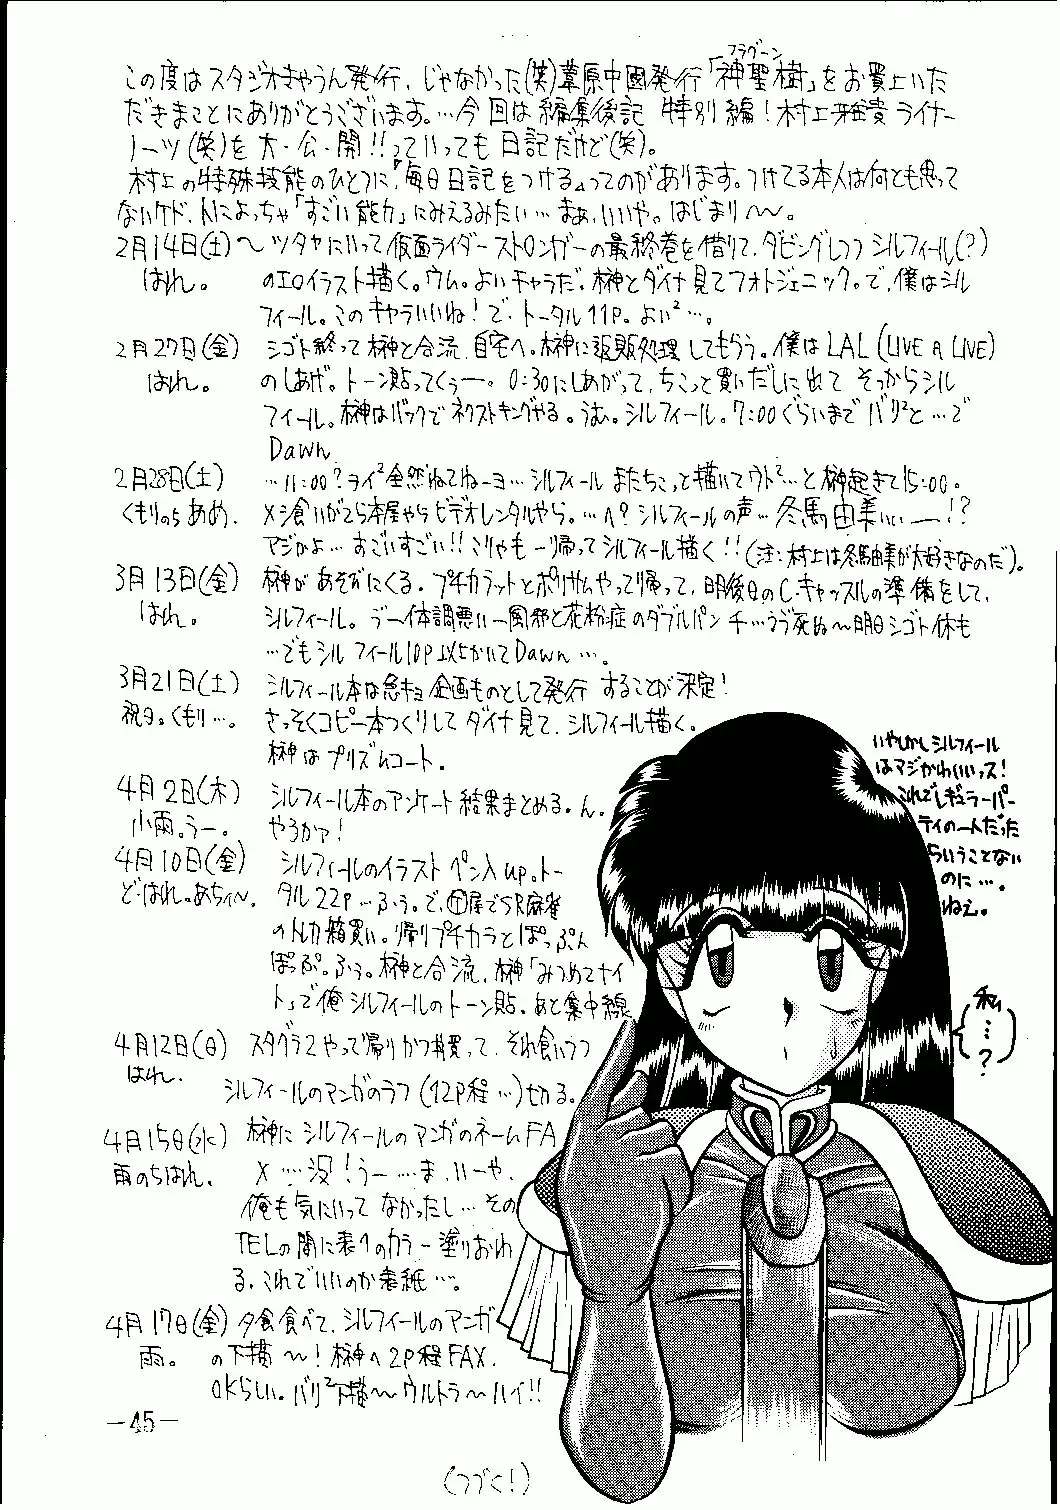 この度はスタジオきゃうん発行、じゃなかった(笑)葦原中國発行「神聖樹」をお買上いた
フラグーン
だきまことにありがとうございます。…今回は編集後記 特別編!村上雅貴ライナー
ノーツ(笑)を大・公・開!!っていっても日記だけど(笑)。
村上の特殊技能のひとつに「毎日日記をつける」ってのがあります。つけてる本人は何とも思って
ないケド、人によっちゃ「すごい能力」にみえるみたい…まぁ、いいや。はじまり〜〜。
2月14日(土)〜 ツタヤにいって仮面ライダーストロンガーの最終巻を借りて、ダビングしつつシルフィール(?)
はれ。 のエロイラスト描く。ウム。よいキャラだ。榊とダイナ見てフォトジェニック。で、僕はシル
フィール。このキャラいいね!で、トータル11P。よい²…。
2月27日(金) シゴト終って榊と合流、自宅へ。榊に返販処理してもらう。僕はLAL(LIVE A LIVE)
はれ。 のしあげ。トーン貼ってくぅー。0:30にしあがって、ちこっと買いだしに出てそっからシル
フィール。榊はバックでネクストキングやる。うむ。シルフィール。7:00ぐらいまでバリ²と…で
Dawn
2月28日(土) …11:00?ライ²全然ねてねーヨ…シルフィールまたちこっと描いてウト²…と榊起きて15:00。
くもりのちあめ。 メシ食いがてら本屋やらビデオレンタルやら。…へ?シルフィールの声…冬馬由美ぃぃ—!?
マジかよ…すごいすごい!!こりゃも一り帰ってシルフィール描く!!(注:村上は冬馬由美が大好きなのだ)。
3月13日(金) 榊があそびにくる。プチカラットとポリサムやって帰って、明後日のC.キャッスルの準備をして、
はれ。 シルフィール。ゔー体調悪いー風邪と花粉症のダブルパンチ…ゔゔ死ぬ〜明日シゴト休も
…でもシルフィール10P以上かいてDawn…。
3月21日(土) シルフィール本は急キョ企画ものとして発行することが決定!
祝日。くもり…。 さっそくコピー本つくりしてダイナ見て、シルフィール描く。
榊はプリズムコート。
4月2日(木) シルフィール本のアンケート結果まとめる。ん。
小雨。うー。 やるかァ!
4月10日(金) シルフィールのイラストペン入up。トー
ど・はれ。あちぃ〜。 タル22P…ふぅ。で、屋でSR麻雀
のトレカ箱買い。帰りプチカラとぱっぷん
ぱっぷ。ふぅ。榊と合流、榊「みつめてナイ
ト」で俺シルフィールのトーン貼。あと集中線
4月12日(日) スタグラ2やって帰りかつ丼買って、それ食いつつ
はれ。 シルフィールのマンガのラフ(12P程…)切る。
4月15日(水) 榊にシルフィールのマンガのネームFA
雨のちはれ。 X…没!うー……ま、いーや、
俺も気にいってなかったし…その
TELの間に表1のカラー塗りおわ
る、これでいいのか表紙…。
4月17日(金) 夕食食べて、シルフィールのマンガ
雨。 の下描〜!榊へ2P程FAX、
OKらしい。バリ²下描〜ウルトラ〜ハイ!!
いやしかしシルフィール
はマジかわいいっス!
これでレギュラーパー
ティの一人だった
らいうことない
のに…。
ねぇ。
私…?
-45-
(つづく!)